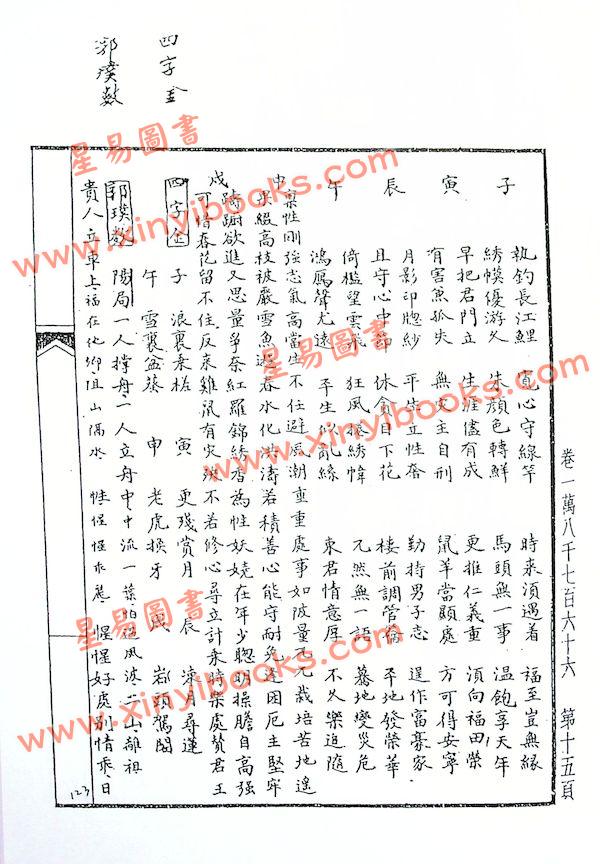 四字金
郭璞數
卷一萬八千七百六十六 第十五頁
子 執釣長江鯉 寬心守線竿 時來須遇着 福至豈無緣
綉幙優游久 朱顏色轉鮮 馬頭無一事 溫飽享天年
寅 早把君門立 生涯儘有成 更推仁義重 須向福田榮
有害兼孤失 無父主自刑 鼠羊當顯處 方可得安寧
月影印牕紗 平生立性奢 勤持男子志 逞作富豪家
辰 且守心中節 休貪日下花 樓前調管籥 平地發榮華
倚檻望雲飛 狂風 綉幃 兀然無一語 驀地變災危
午 鴻鴈聲尤遠 平生似亂絲 東君情意厚 不久樂追隨
申 稟性剛強志氣高當生不任避風潮重重處事如陂量不尤栽培苦地遙
果綴高枝被嚴雪魚 春水化洪濤若積善心能守耐免逢困厄主堅牢
戌 躊躕欲進又思量爭奈紅羅錦綉香為性妖嬈在年少聰明操膽自高強
可惜春花留不住反來雞鼠有災殃不若修心尋立計乘時榮處贊君王
四字金 子 浪裏乘槎 寅 更殘賞月 辰 涼月尋蓮
午 雪裏盆葵 申 老虎換牙 戌 岩頭駕閣
郭璞數 陽局一人撐舟一人立舟中中流一葉怕逢風波二山離祖
貴人立車上福在他鄉阻山隔水 性怪怪乖 惺惺好處別情乖日
123
星易圖書
www.xinyibooks.com
星易圖書
www.xinyibooks.com
星易圖書
www.xinyibooks.com
星易圖書
www.xinyibooks.com
星易圖書
www.xinyibooks.com